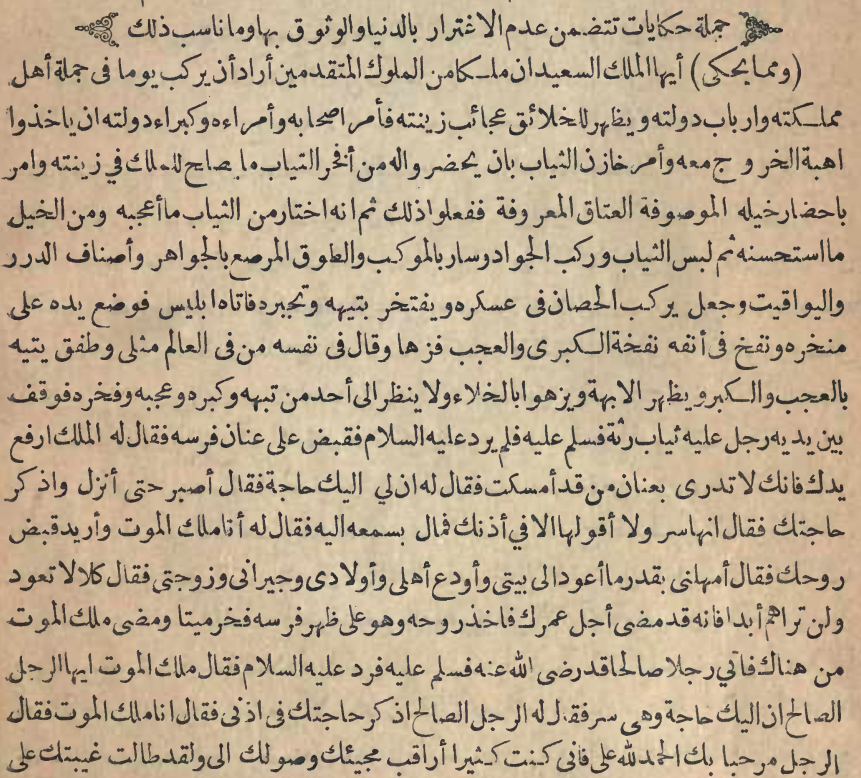 جملة حكايات تتضمن عدم الاغترار بالدنيا والوثوق بها وما ناسب ذلك
(ومما يحكى) أيها الملك السعيد ان ملكا من الملوك المتقدمين أراد أن يركب يوما فى جملة أهل
مملكته وارباب دولته ويظهر للخلائق عجائب زينته فأمر اصحابه وأمراءه وكبراء دولته ان ياخذوا
اهبة الخروج معه وأمر خازن الثياب بان يحضر واله من أفخر الثياب ما يصلح للملك في زينته وامر
باحضار خيله الموصوفة العتاق المعروفة ففعلوا ذلك ثم انه اختار من الثياب ما أعجبه ومن الخيل
ما استحسنه ثم لبس الثياب وركب الجواد وسار بالموكب والطوق المرصع بالجواهر وأصناف الدرر
واليواقيت وجعل يركب الحصان فى عسكره ويفتخر بتيهه وتجبره فاتاه ابليس فوضع يده على
منخره ونفخ فى أنفه نفخة الكبرى والعجب فزها وقال فى نفسه من فى العالم مثلى وطفق يتيه
بالعجب والكبر ويظهر الابهة ويزهوا بالخلاء ولا ينظر الى أحد من تيهه وكبره وعجبه وفخره فوقف
بين يديه رجل عليه ثياب رثة فسلم عليه فلم يرد عليه السلام فقبض على عنان فرسه فقال له الملك ارفع
يدك فانك لا تدرى بعنان من قد أمسكت فقال له ان لي اليك حاجة فقال أصبر حتى أنزل واذكر
حاجتك فقال انها سر ولا أقولها الا في أذنك فمال بسمعه اليه فقال له أنا ملك الموت وأريد قبض
روحك فقال أمهلنى بقدر ما أعود الى بيتى وأودع أهلى وأولادى وجيرانى وزوجتى فقال كلا لا تعود
ولن تراهم أبدا فانه قد مضى أجل عمرك فاخذ روحه وهو على ظهر فرسه فخر ميتا ومضى ملك الموت
من هناك فاتي رجلا صالحا قد رضى الله عنه فسلم عليه فرد عليه السلام فقال ملك الموت ايها الرجل
الصالح ان اليك حاجة وهى سر فقال له الرجل الصالح اذكر حاجتك فى اذنى فقال انا ملك الموت فقال
الرجل مرحبا بك الحمد لله على فانى كنت كثيرا أراقب مجيئك وصولك الى ولقد طالت غيبتك على